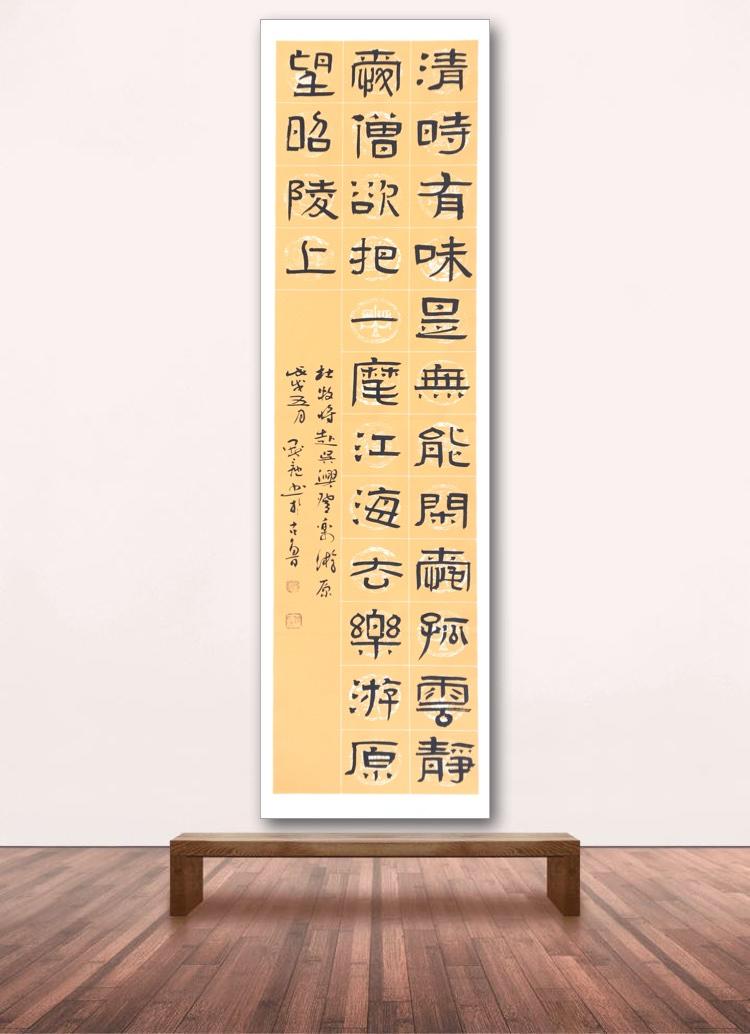 清時有味是無能閑愛孤雲靜
愛僧欲把一麾江海去樂游原
望昭陵上
杜牧将赴吳興登樂游原
戊戌五月 书於古魯